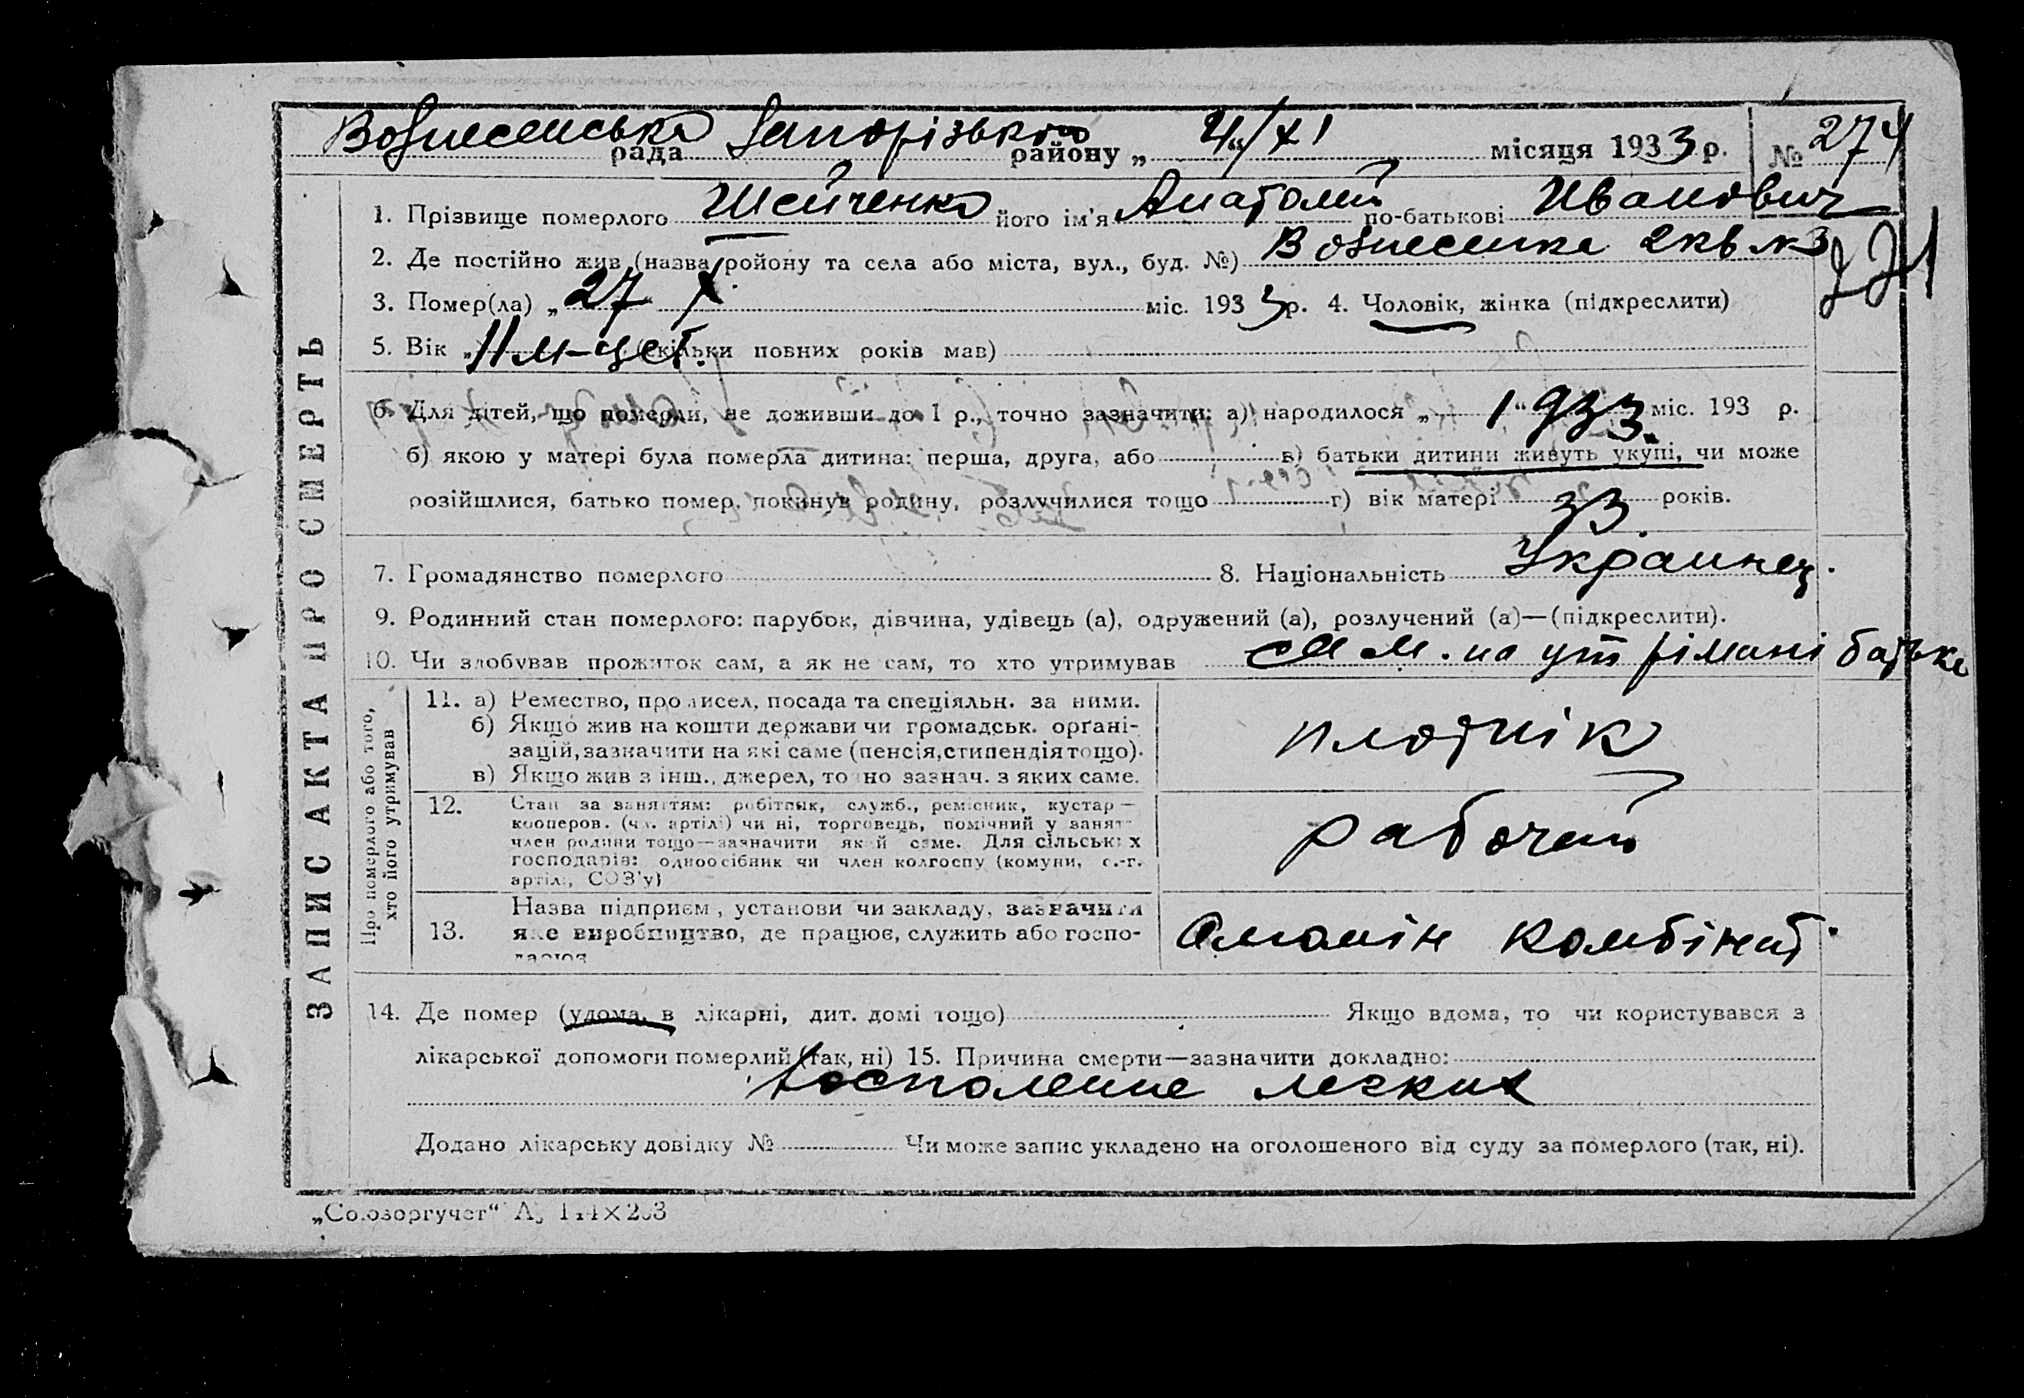 Вознесенська рада Запорізького району „ 4/XI місяця 1933 р. № 274
1. Прізвище померлого Шейченко його ім'я Анатолий по-батькові Иванович
2. Де постійно жив (назва ройону та села або міста, вул., буд. №) Вознесенка 2 кв №3
3. Помер(ла) „ 27 X міс. 1933 р. 4. Чоловік, жінка (підкреслити)
5. Вік „ 11 м-цев. (скільки повних років мав)
6. Для дітей, що померли, не доживши до 1 р., точно зазначити: а) народилося „ 1“ 933. міс. 193 р.
б) якою у матері була померла дитина: перша, друга, або в) батьки дитини живуть укупі, чи може
розійшлися, батько помер, покинув родину, розлучилися тощо г) вік матері 33 років.
7. Громадянство померлого 8. Національність Украинец.
9. Родинний стан померлого: парубок, дівчина, удівець (а), одружений (а), розлучений (а)—(підкреслити).
10. Чи здобував прожиток сам, а як не сам, то хто утримував на утрімані батька
ЗАПИС АКТА ПРО СМЕРТЬ
Про померлого або того,
хто його утримував
11. а) Ремество, промисел, посада та спеціяльн. за ними.
б) Якщо жив на кошти держави чи громадськ. орґані-
зацій, зазначити на які саме (пенсія, стипендія тощо).
в) Якщо жив з інш., джерел, точно зазнач. з яких саме.
плотнік
12. Стан за заняттям: робітник, служб., ремісник, кустар—
кооперов. (чл. артілі) чи ні, торговець, помічний у занят
член родини тощо—зазначити який саме. Для сільських
господарів: одноосібник чи член колгоспу (комуни, с.-г.
артілі, СОЗ'у)
рабочий
13. Назва підприєм, установи чи закладу, зазначити
яке виробництво, де працює, служить або госпо-
дарює
Алюмін комбінат.
14. Де помер (удома, в лікарні, дит. домі тощо) Якщо вдома, то чи користувався з
лікарської допомоги померлий (так, ні) 15. Причина смерти—зазначити докладно:
Воспаление легких
Додано лікарську довідку № Чи може запис укладено на оголошеного від суду за померлого (так, ні).
„Союзоргучет“